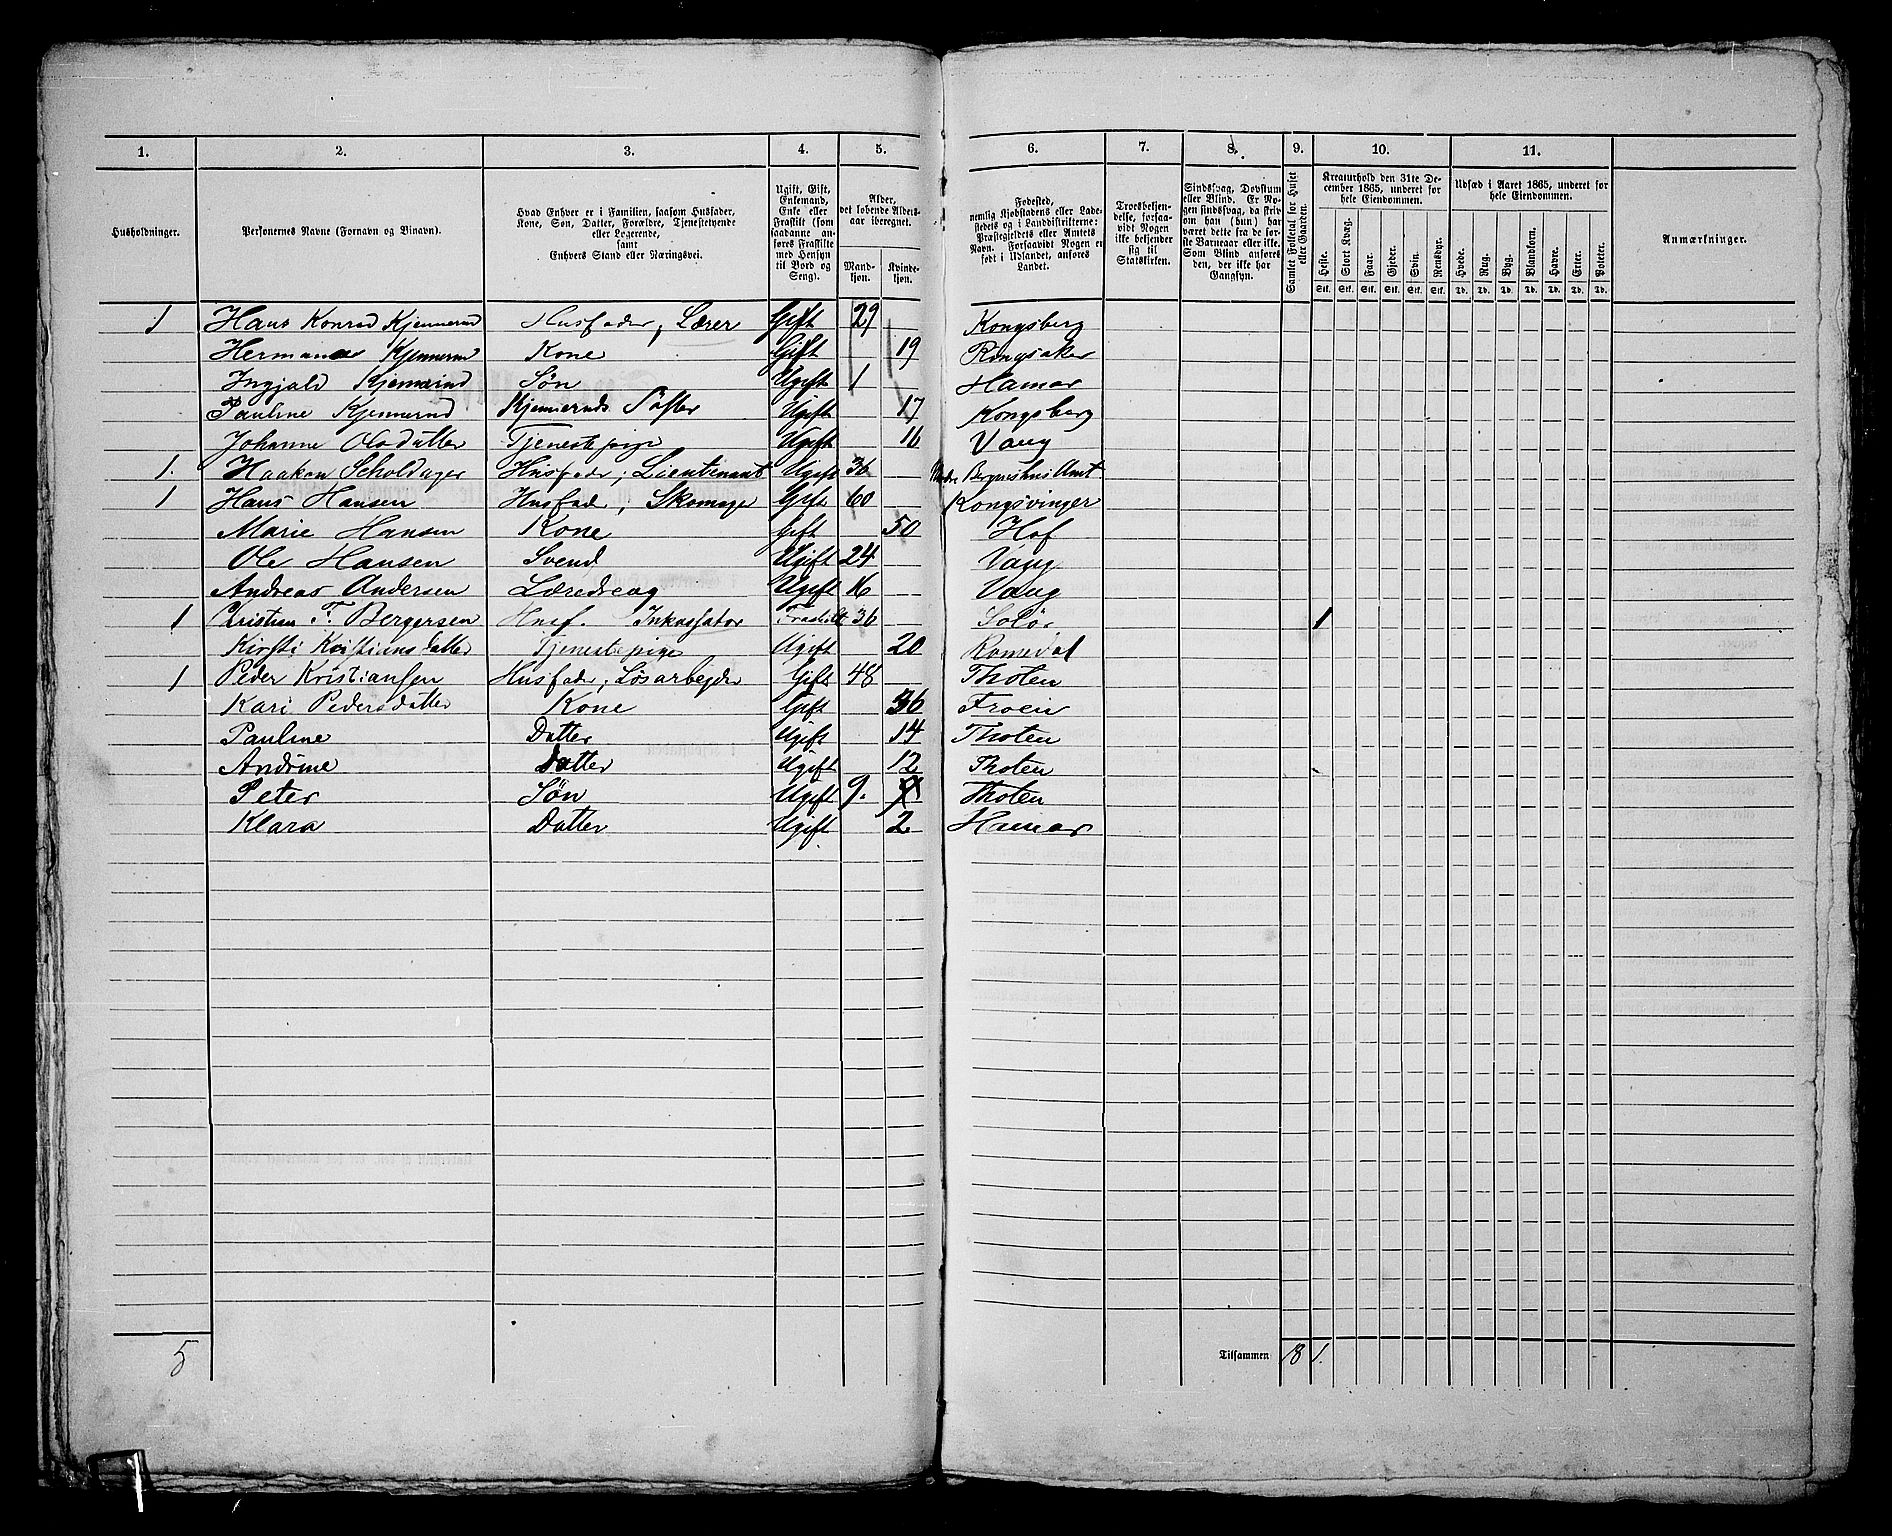 1. 2. 3. 4. 5. 6. 7. 8. 9. 10. 11.
Husholdninger.
Personernes Navne (Fornavn og Binavn).
Hvad Enhver er i Familien, saasom Husfader,
Kone, Søn, Datter, Forældre, Tjenestetyende
eller Logerende,
samt
Enhvers Stand eller Næringsvei.
Ugift, Gift,
Enkemand,
Enke eller
Fraskilt (som
saadanne an-
føres Fraskilte
med Hensyn
til Bord og
Seng).
Alder,
det løbende Alders-
aar iberegnet.
Mand-
kjøn.
Kvinde-
kjøn.
Fødested,
nemlig Kjøbstadens eller Lade-
stedets og i Landdistrikterne:
Præstegjeldets eller Amtets
Navn. Forsaavidt Nogen er
født i Udlandet, anføres
Landet.
Troesbekjen-
delse, forsaa-
vidt Nogen
ikke bekjender
sig til
Statskirken.
Sindssvag, Døvstum
eller Blind. Er No-
gen sindssvag, da skriv
om han (hun) har
været dette fra de før-
ste Barneaar eller ikke.
Som Blind anføres
den, der ikke har
Gangsyn.
Samlet Folketal for Huset
eller Gaarden.
Kreaturhold den 31te De-
cember 1865, underet for
hele Eiendommen.
Heste. Stort Kvæg. Faar. Gjeder. Svin. Rensdyr.
Stk. Stk. Stk. Stk. Stk. Stk.
Udsæd i Aaret 1865, underet for
hele Eiendommen.
Hvede. Rug. Byg. Blandkorn. Havre. Erter. Poteter.
Td. Td. Td. Td. Td. Td. Td.
Anmærkninger.
1 Hans Konrad Kjennerud Husfader, Lærer Gift 29 Kongsberg
Hermana Kjennerud Kone Gift 19 Ringsaker
Ingjald Kjennerud Søn Ugift 1 Hamar
Pauline Kjennerud Kjenneruds Søster Ugift 17 Kongsberg
Johanne Olsdatter Tjenestepige Ugift 16 Vang
1. Haakon Scholdager Husfader; Lieutenant Ugift 36 Nordre Bergenshus Amt
1 Hans Hansen Husfader, Skomager Gift 60 Kongsvinger
Marie Hansen Kone Gift 50 Hof
Ole Hansen Svend Ugift 24 Vang
Andreas Andersen Læredreng Ugift 16 Vang
1 Christian F. Bergersen Husf. Inkassator Fraskilt 36 Solør 1
Kirsti Kristiansdatter Tjenestepige Ugift 20 Romedal
1 Peder Kristiansen Husfader; Løsarbejder Gift 48 Thoten
Kari Pedersdatter Kone Gift 36 Froen
Pauline Datter Ugift 14 Thoten
Andrine Datter Ugift 12 Thoten
Peter Søn Ugift 9. Thoten
Klara Datter Ugift 2 Hamar
5 Tilsammen 18 1.